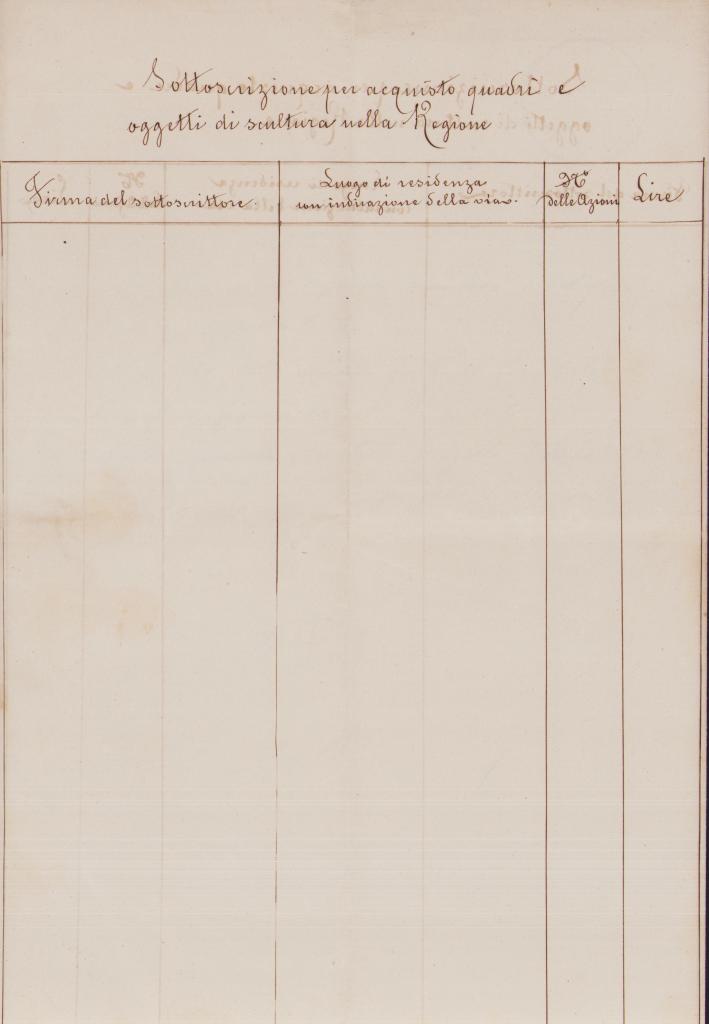 Sottoscrizione per acquisto quadri e
oggetti di scultura nella Regione
Firma del sottoscrittore.
Luogo di residenza
con indicazione della via.
N°
delle Azioni
Lire